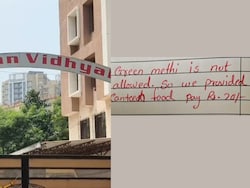 an Vidhya
Green methi is not
allowed. So we provided
food Pay Rs. 20/-